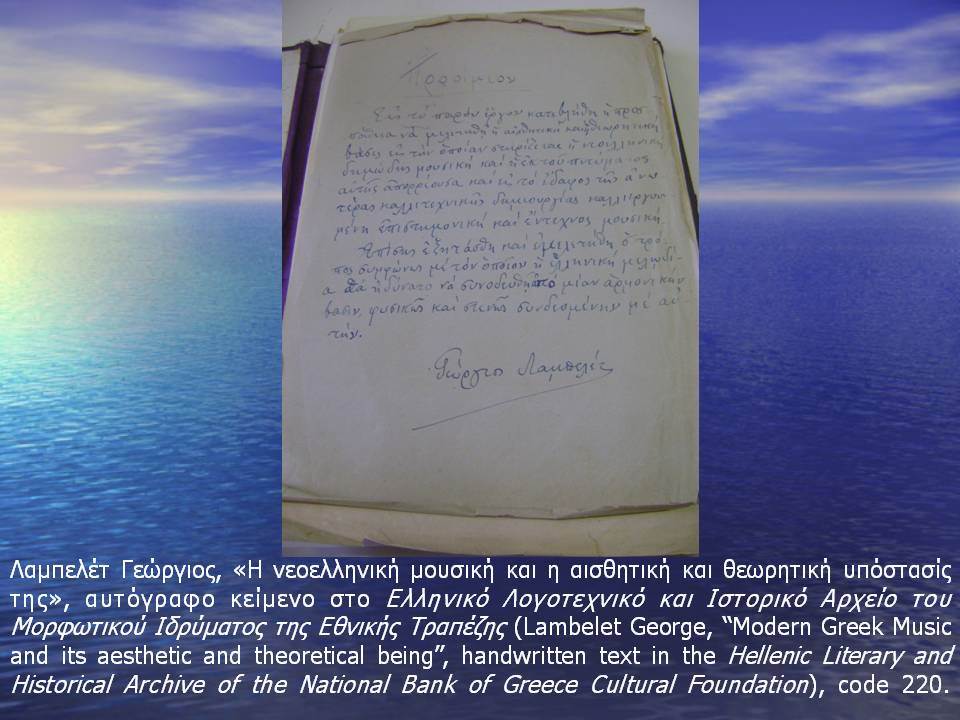 Προοίμιον
Εἰς τὸ παρὸν ἔργον κατεβλήθη ἡ προσ-
πάθεια νὰ μελετηθῇ ἡ αἰσθητικὴ καὶ ἡ θεωρητικὴ
βάσις εἰς τὴν ὁποίαν στηρίζεται ἡ νεοελληνικὴ
δημώδης μουσικὴ καὶ ἡ ἐκ τοῦ πνεύματος
αὐτῆς ἀπορρέουσα καὶ εἰς τὸ ἔδαφος τῆς ἀνω-
τέρας καλλιτεχνικῆς δημιουργίας καλλιεργου-
μένη ἐπιστημονικὴ καὶ ἔντεχνος μουσική.
Ἐπίσης ἐξητάσθη καὶ ἐμελετήθη ὁ τρό-
πος συμφώνως μὲ τὸν ὁποῖον ἡ ἑλληνικὴ μελωδί-
α θὰ ἠδύνατο νὰ συνοδευθῇ ἀπὸ μίαν ἁρμονικὴν
βάσιν, φυσικῶς καὶ στενῶς συνδεομένην μὲ αὐ-
τήν.
Γεώργιος Λαμπελέτ
Λαμπελέτ Γεώργιος, «Η νεοελληνική μουσική και η αισθητική και θεωρητική υπόστασίς
της», αυτόγραφο κείμενο στο Ελληνικό Λογοτεχνικό και Ιστορικό Αρχείο του
Μορφωτικού Ιδρύματος της Εθνικής Τραπέζης (Lambelet George, “Modern Greek Music
and its aesthetic and theoretical being”, handwritten text in the Hellenic Literary and
Historical Archive of the National Bank of Greece Cultural Foundation), code 220.